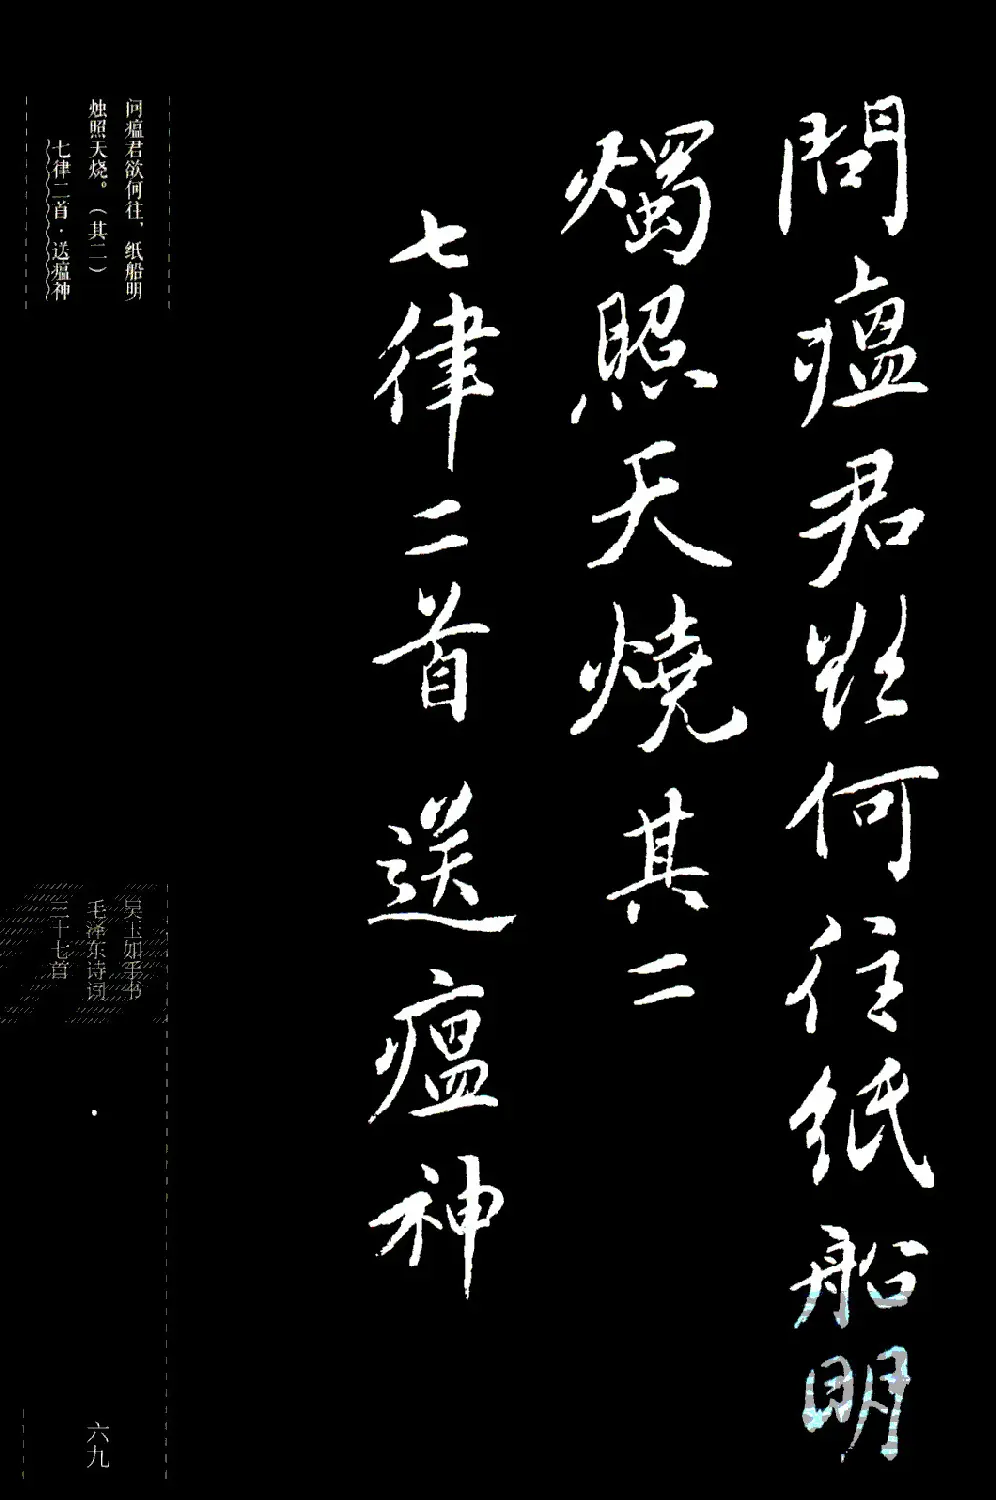 問瘟君欲何往紙船明
燭照天燒其二
七律二首送瘟神
问瘟君欲何往，纸船明
烛照天烧。（其二）
七律二首·送瘟神
吴玉如手书
毛泽东诗词
三十七首
六九